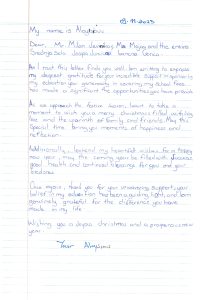 My name is Aloysious
Dear. Mr. Milan and the entire
As I must this letter finds you well. I am writing to express
my deepest gratitude for your incredible support in
my education your generosity in covering my school fees
has made a significant the opportunities you have provide
As we approach the festive season, I want to take a
moment to wish you a merry christmas filled with joy
love and the warmth of family and friends. May this
Special time bring you moments of happiness and
reflection.
Additionally, I extend my heartfelt wishes for a happy
new year, may the coming year be filled with success,
good health and continued blessings for you and your
loved ones
Once again, thank you for your unwavering support, your
belief in my education has been a guiding light, and I am
genuinely grateful for the difference you have
made in my life
Wishing you a joyous christmas and a prosperous new
year.
Your Aloysious